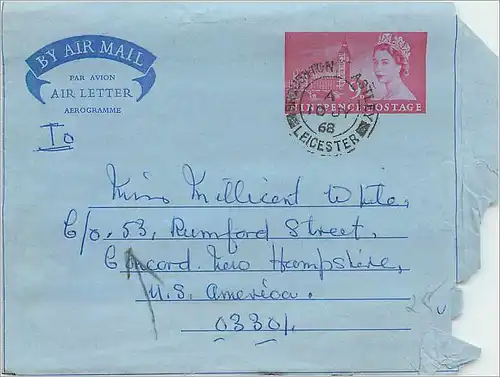 BY AIR MAIL
PAR AVION
AIR LETTER
AEROGRAMME
NINEPENCE POSTAGE
BROUGHTON ASTLEY
LEICESTER
68
To
Miss Millicent White,
C/o. 53, Rumford Street,
Concord. New Hampshire,
U.S. America.
03301.